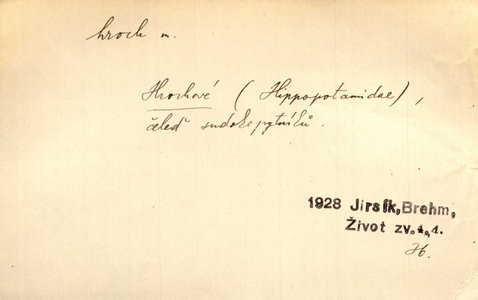 hroch m.
Hrochové (Hippopotamidae),
čeleď sudokopytníků.
1928 Jirsík, Brehm,
Život zv. 1, 4.
H.